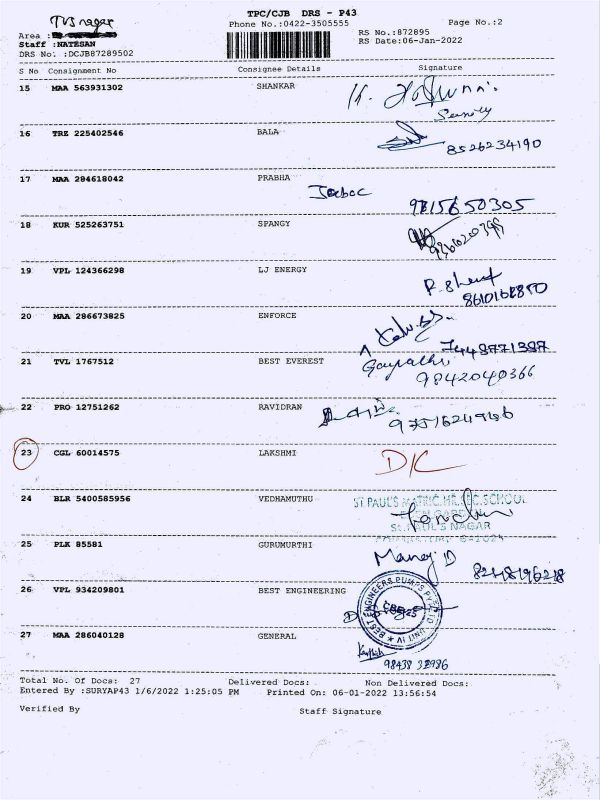 TVS nagar
TPC/CJB DRS - P43
Phone No.:0422-3505555
Page No.:2
RS No.:872895
RS Date:06-Jan-2022
Area :
Staff :NATESAN
DRS No. :DCJB87289502
S No Consignment No Consignee Details Signature
15 MAA 563931302 SHANKAR
16 TRZ 225402546 BALA 8526234190
17 MAA 284618042 PRABHA
9715650305
18 KUR 525263751 SPANGY
19 VPL 124366298 LJ ENERGY
20 MAA 286673825 ENFORCE
21 TVL 1767512 BEST EVEREST
9842040366
22 PRO 12751262 RAVIDRAN
23 CGL 60014575 LAKSHMI
24 BLR 5400585956 VEDHAMUTHU ST.PAUL'S MATRIC.HR.SEC.SCHOOL
ST.PAUL'S NAGAR
25 PLK 85581 GURUMURTHI Manoj D
26 VPL 934209801 BEST ENGINEERING BEST ENGINEERS PUMPS UNIT IV
27 MAA 286040128 GENERAL
Total No. Of Docs: 27 Delivered Docs: Non Delivered Docs:
Entered By :SURYAP43 1/6/2022 1:25:05 PM Printed On: 06-01-2022 13:56:54
Verified By Staff Signature